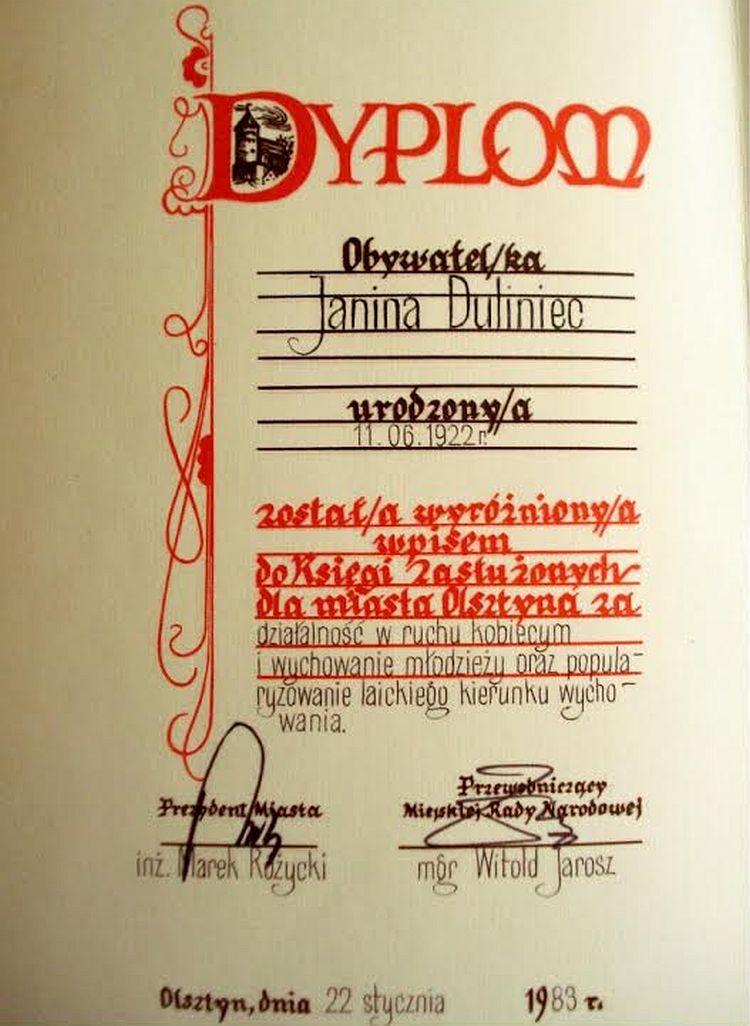 DYPLOM
Obywatel/ka
Janina Duliniec
urodzony/a
11.06.1922 r.
został/a wyróżniony/a
wpisem
do Księgi Zasłużonych
dla miasta Olsztyna za
działalność w ruchu kobiecym
i wychowanie młodzieży oraz popula-
ryzowanie laickiego kierunku wycho-
wania.
Prezydent Miasta
inż. Marek Różycki
Przewodniczący
Miejskiej Rady Narodowej
mgr Witold Jarosz
Olsztyn, dnia 22 stycznia 1983 r.